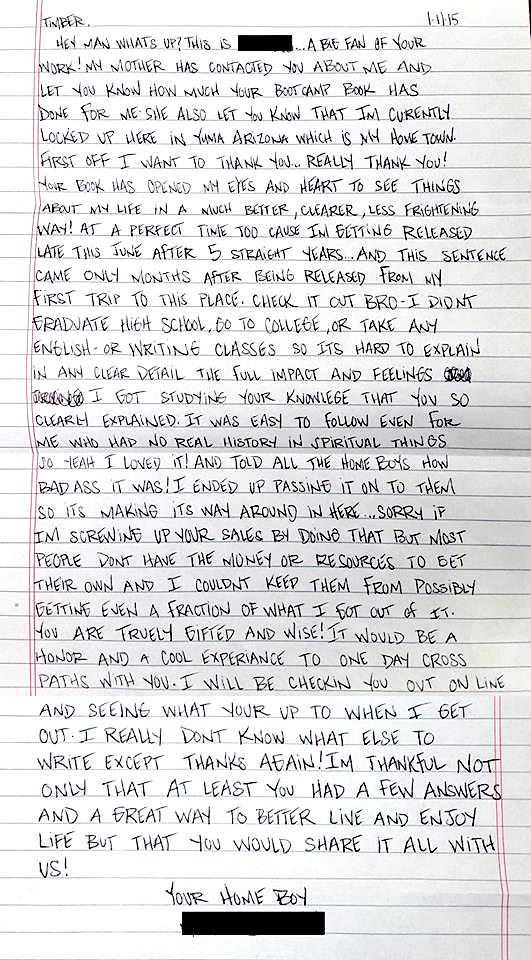 TIMBER, 1-11-15
HEY MAN WHATS UP? THIS IS ...A BIG FAN OF YOUR
WORK! MY MOTHER HAS CONTACTED YOU ABOUT ME AND
LET YOU KNOW HOW MUCH YOUR BOOTCAMP BOOK HAS
DONE FOR ME. SHE ALSO LET YOU KNOW THAT IM CURENTLY
LOCKED UP HERE IN YUMA ARIZONA WHICH IS MY HOME TOWN.
FIRST OFF I WANT TO THANK YOU... REALLY THANK YOU!
YOUR BOOK HAS OPENED MY EYES AND HEART TO SEE THINGS
ABOUT MY LIFE IN A MUCH BETTER, CLEARER, LESS FRIGHTENING
WAY! AT A PERFECT TIME TOO CAUSE IM GETTING RELEASED
LATE THIS JUNE AFTER 5 STRAIGHT YEARS... AND THIS SENTENCE
CAME ONLY MONTHS AFTER BEING RELEASED FROM MY
FIRST TRIP TO THIS PLACE. CHECK IT OUT BRO - I DIDNT
GRADUATE HIGH SCHOOL, GO TO COLLEGE, OR TAKE ANY
ENGLISH - OR WRITING CLASSES SO ITS HARD TO EXPLAIN
IN ANY CLEAR DETAIL THE FULL IMPACT AND FEELINGS
I GOT STUDYING YOUR KNOWLEGE THAT YOU SO
CLEARLY EXPLAINED. IT WAS EASY TO FOLLOW EVEN FOR
ME WHO HAD NO REAL HISTORY IN SPIRITUAL THINGS
SO YEAH I LOVED IT! AND TOLD ALL THE HOME BOYS HOW
BAD ASS IT WAS! I ENDED UP PASSING IT ON TO THEM
SO ITS MAKING ITS WAY AROUND IN HERE... SORRY IF
IM SCREWING UP YOUR SALES BY DOING THAT BUT MOST
PEOPLE DONT HAVE THE MONEY OR RESOURCES TO GET
THEIR OWN AND I COULDNT KEEP THEM FROM POSSIBLY
GETTING EVEN A FRACTION OF WHAT I GOT OUT OF IT.
YOU ARE TRUELY GIFTED AND WISE! IT WOULD BE A
HONOR AND A COOL EXPERIANCE TO ONE DAY CROSS
PATHS WITH YOU. I WILL BE CHECKIN YOU OUT ON LINE
AND SEEING WHAT YOUR UP TO WHEN I GET
OUT. I REALLY DONT KNOW WHAT ELSE TO
WRITE EXCEPT THANKS AGAIN! IM THANKFUL NOT
ONLY THAT AT LEAST YOU HAD A FEW ANSWERS
AND A GREAT WAY TO BETTER LIVE AND ENJOY
LIFE BUT THAT YOU WOULD SHARE IT ALL WITH
US!
YOUR HOME BOY